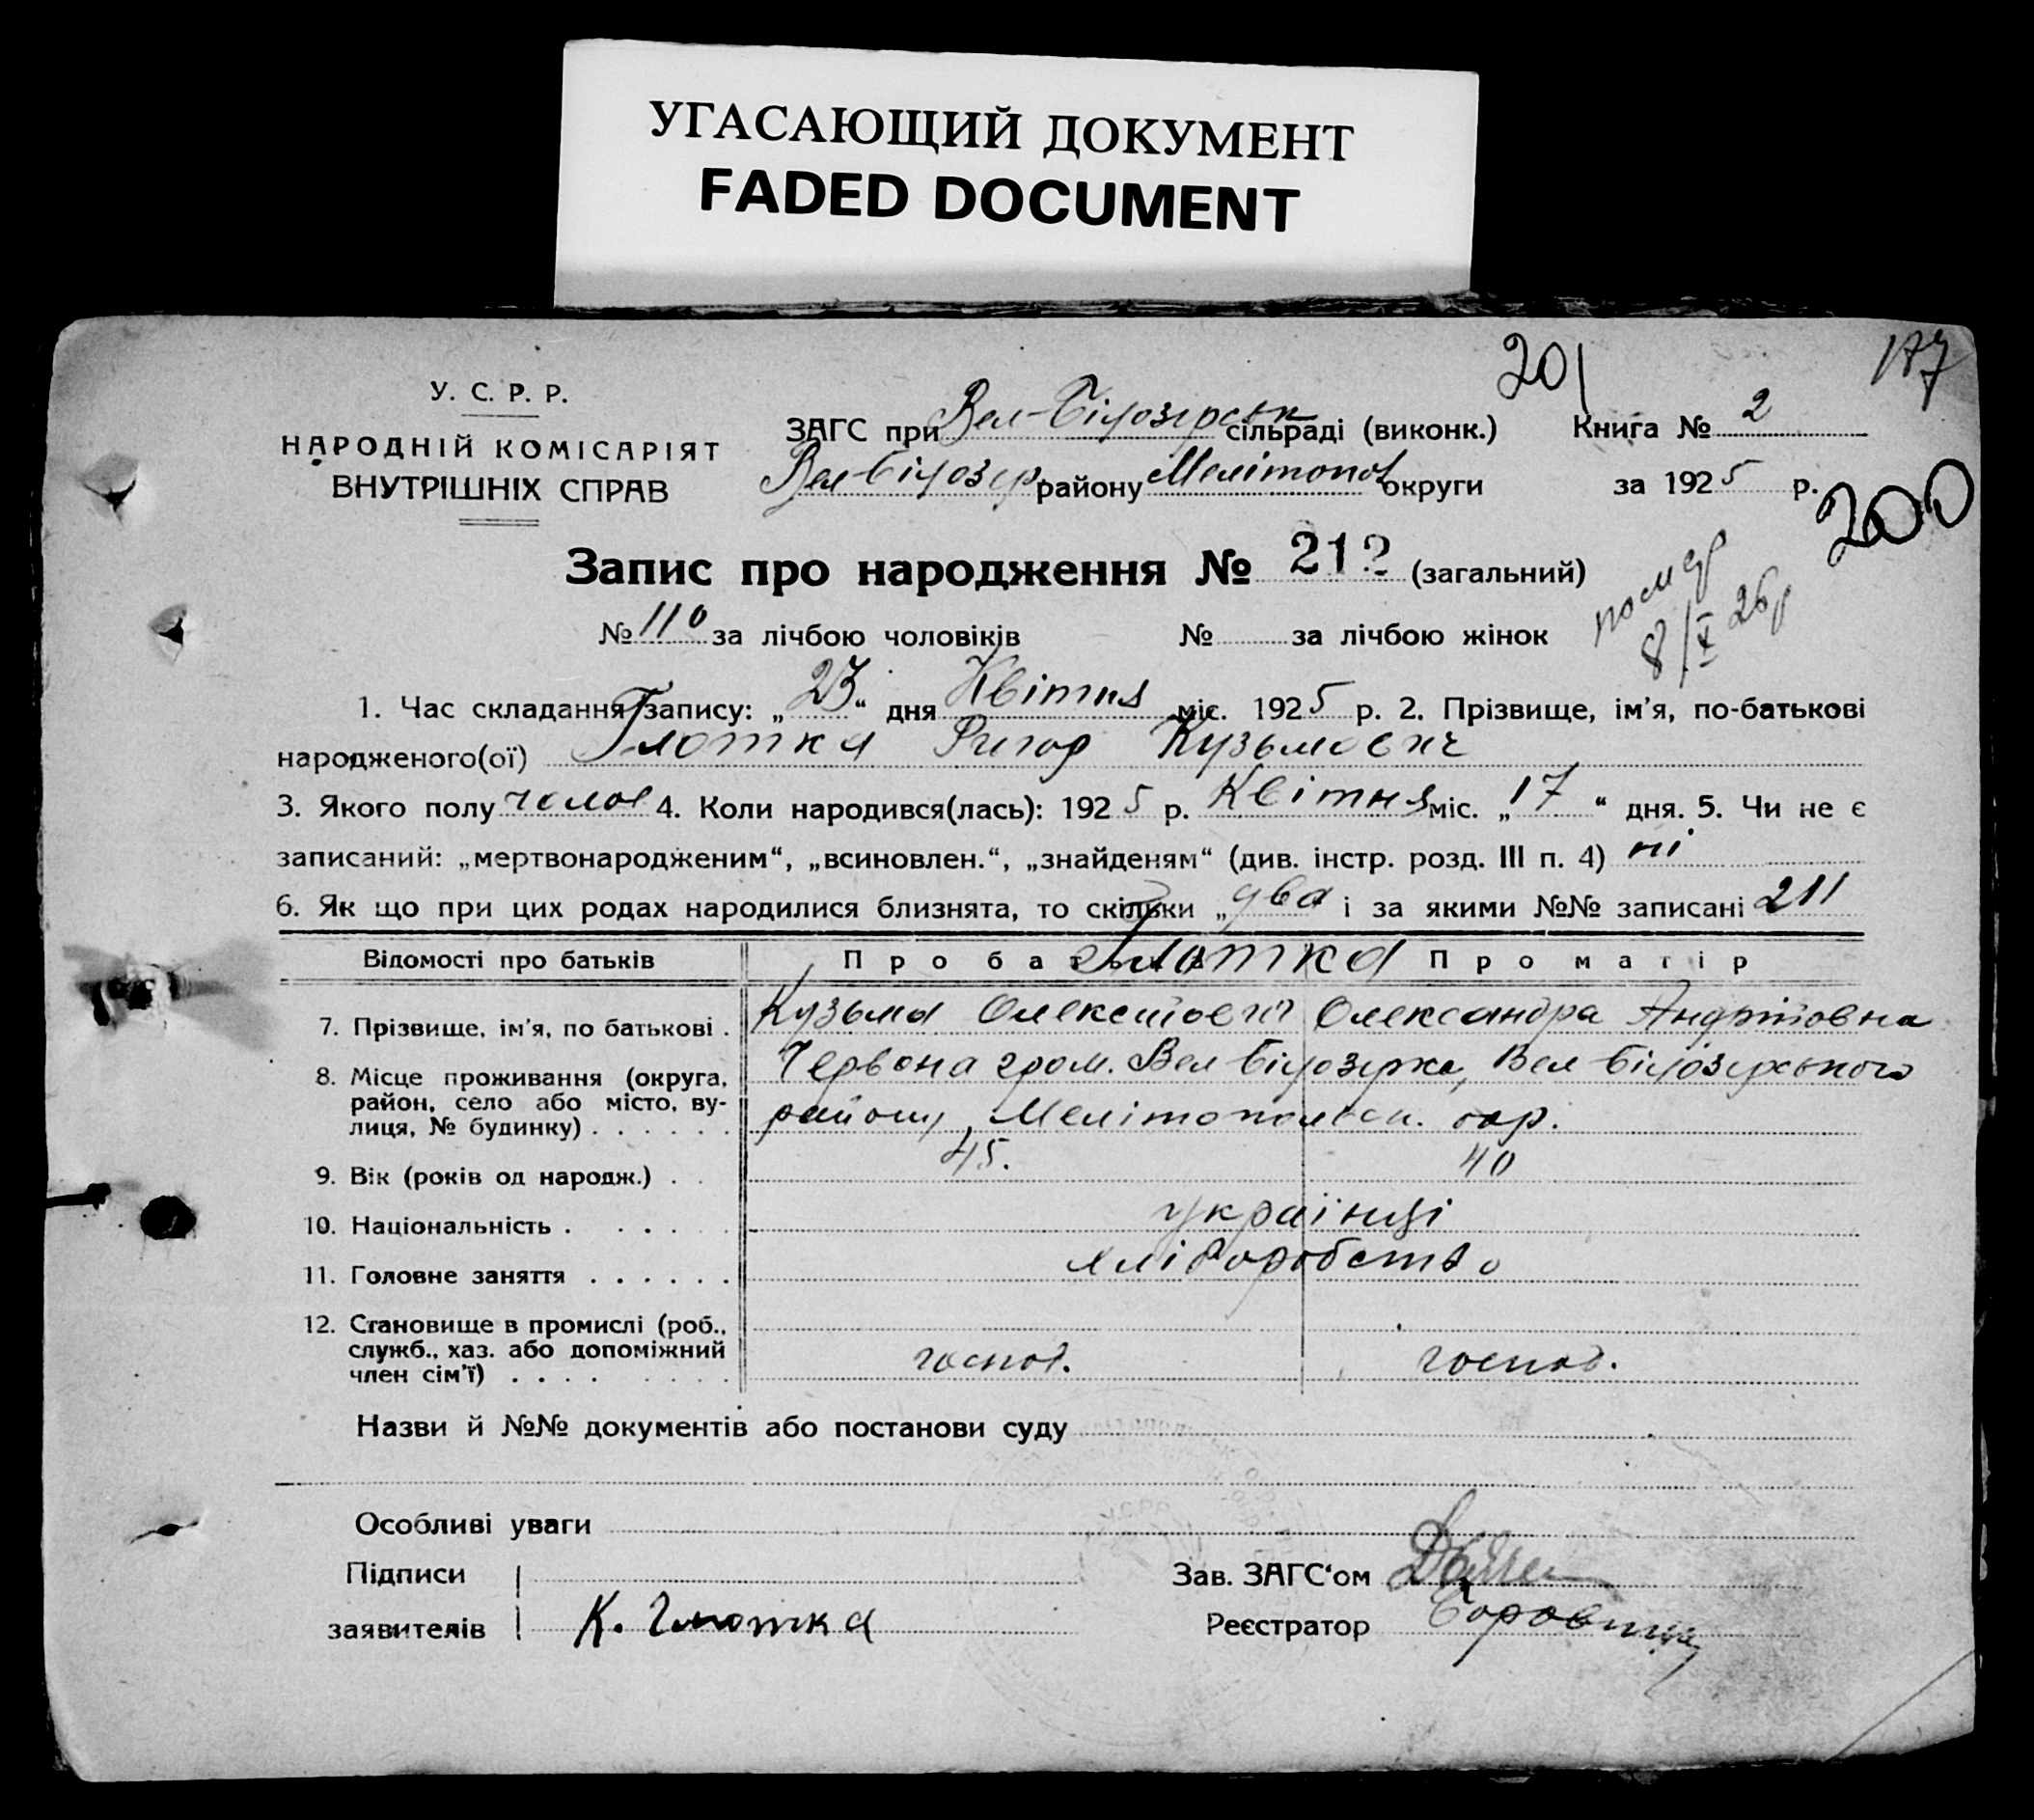 УГАСАЮЩИЙ ДОКУМЕНТ
FADED DOCUMENT
201
177
У. С. Р. Р.
НАРОДНІЙ КОМІСАРІЯТ
ВНУТРІШНІХ СПРАВ
ЗАГС при Вел-Білозерськ сільраді (виконк.) Книга № 2
Вел Білозер. району Мелітопол округи за 1925 р.
200
Запис про народження № 212 (загальний)
помер
8/X 26р
№ 110 за лічбою чоловіків № за лічбою жінок
1. Час складання запису: „23“ дня Квітня міс. 1925 р. 2. Прізвище, ім'я, по-батькові
народженого(ої) Глотка Григор Кузьмович
3. Якого полу чолов 4. Коли народився(лась): 1925 р. Квітня міс. „17“ дня. 5. Чи не є
записаний: „мертвонародженим“, „всиновлен.“, „знайденям“ (див. інстр. розд. III п. 4) ні
6. Як що при цих родах народилися близнята, то скільки „два і за якими №№ записані 211
Відомості про батьків Про батька Про матір
Глотка
7. Прізвище, ім'я, по батькові . Кузьма Олексійович Олександра Андріївна
8. Місце проживання (округа, район, село або місто, вулиця, № будинку) . . . . . . Червона гром. Вел Білозерка, Вел Білозерського
району, Мелітопольськ. окр.
9. Вік (років од народж.) . . 45. 40
10. Національність . . . . . українці
11. Головне заняття . . . . . . хліборобство
12. Становище в промислі (роб., служб., хаз. або допоміжний член сім'ї) . . . . господ. господ.
Назви й №№ документів або постанови суду
Особливі уваги
Підписи
заявителів К. Глотка
Зав. ЗАГС‘ом
Реєстратор